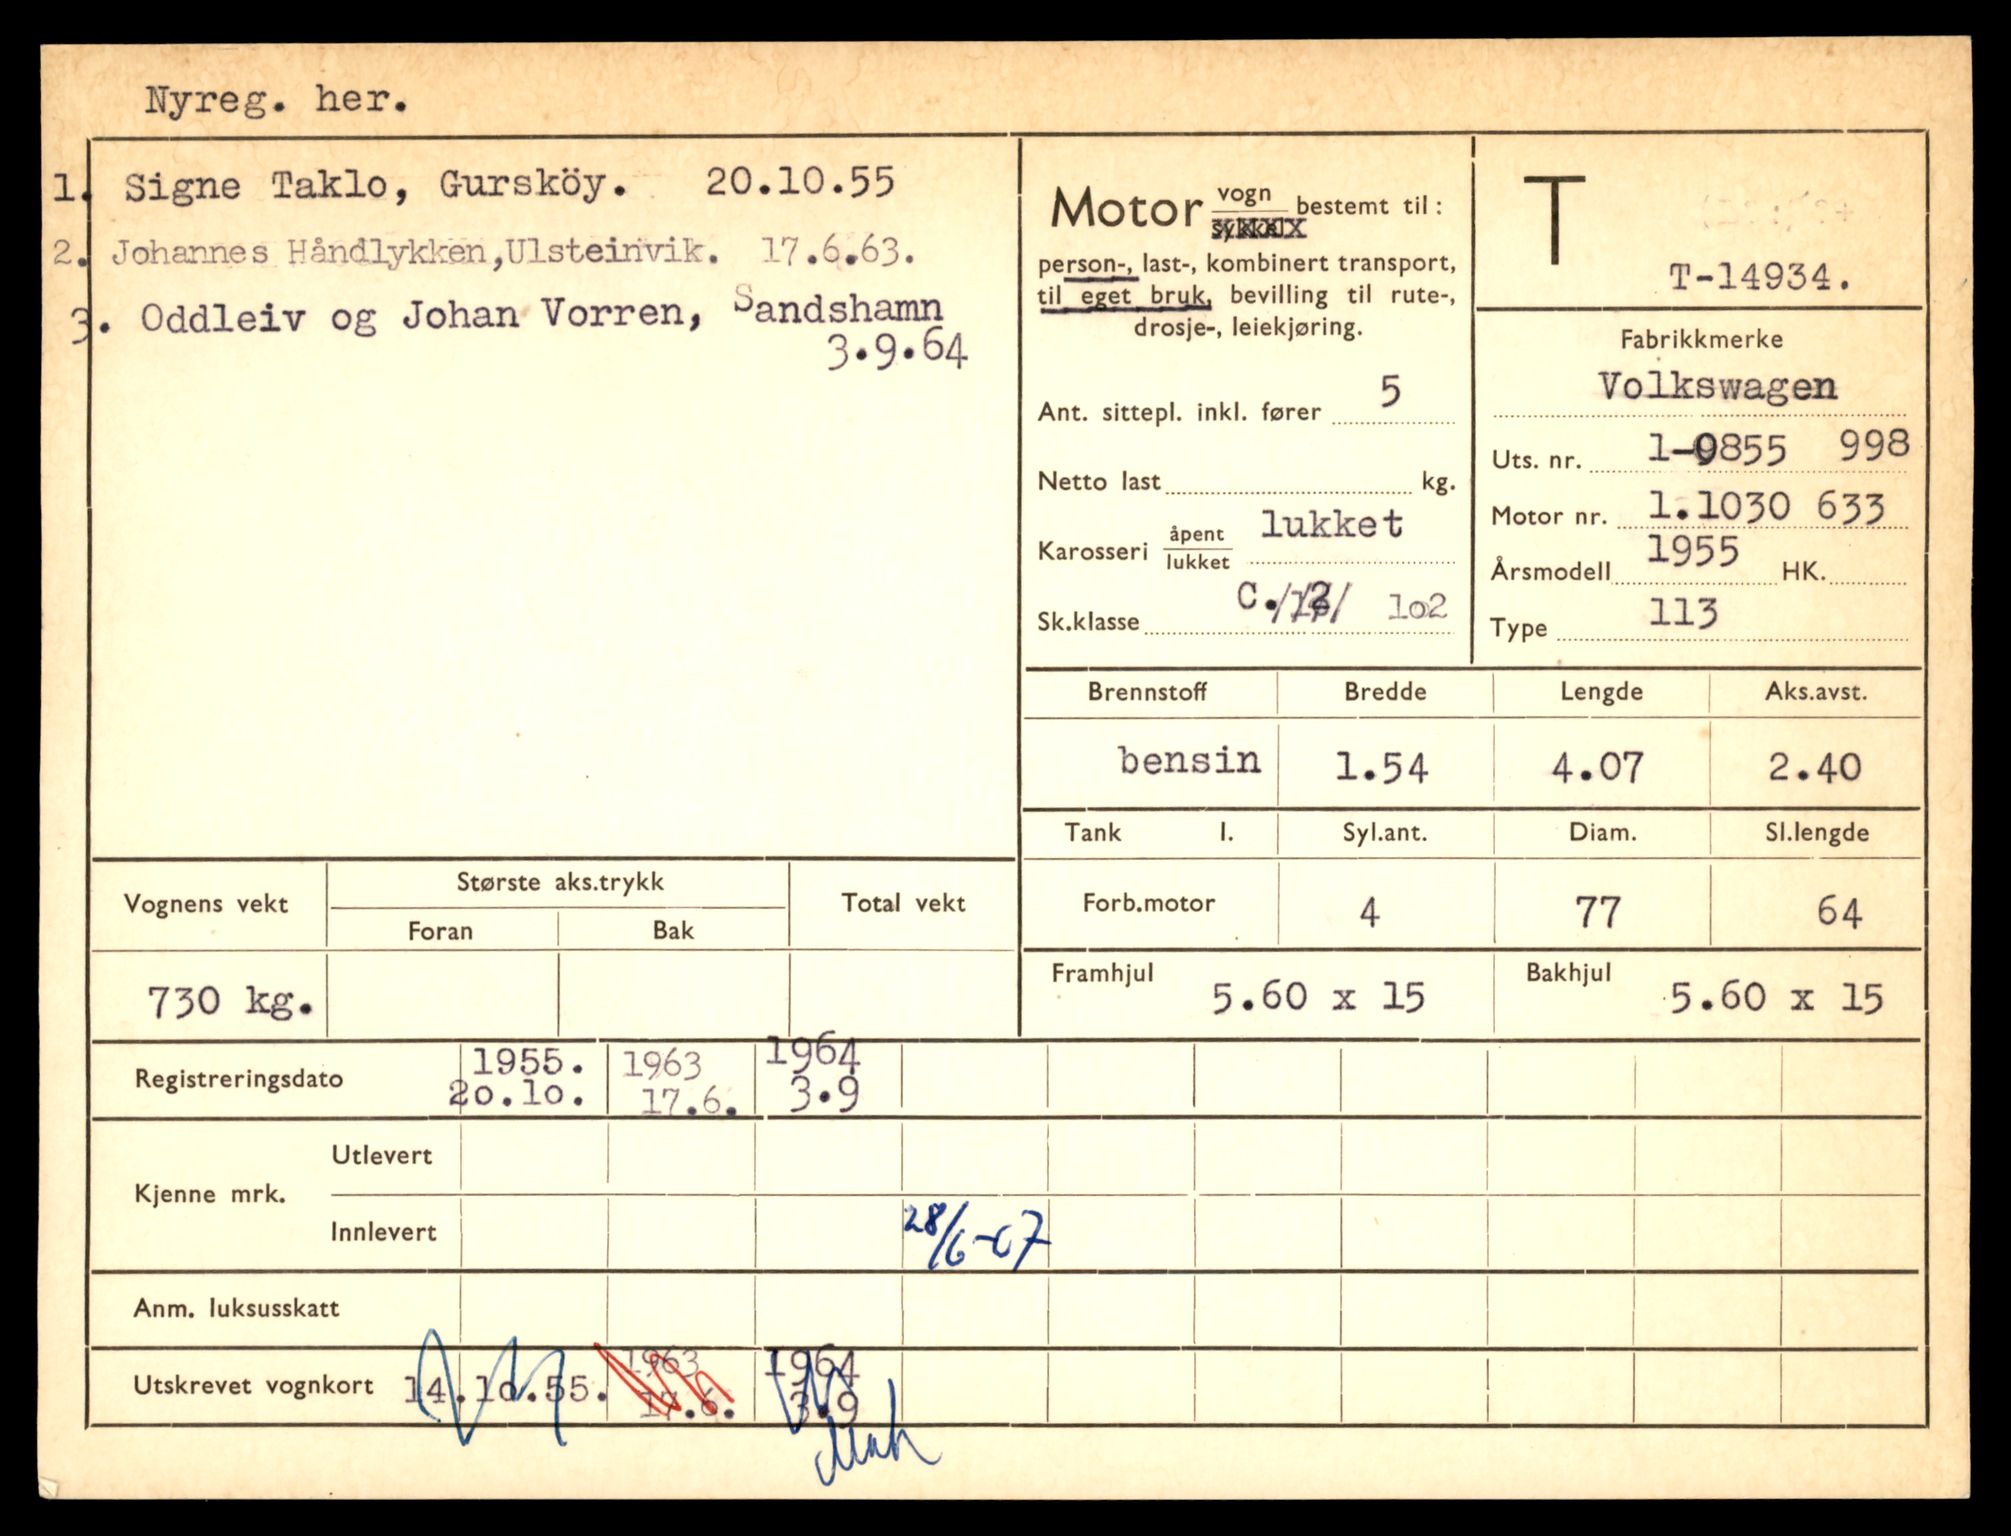 Nyreg. her.
1. Signe Taklo, Gursköy. 20.10.55
2. Johannes Håndlykken,Ulsteinvik. 17.6.63.
3. Oddleiv og Johan Vorren, Sandshamn
3.9.64
Motor vogn sykkel bestemt til:
person-, last-, kombinert transport,
til eget bruk, bevilling til rute-,
drosje-, leiekjøring.
Ant. sittepl. inkl. fører 5
Netto last kg.
Karosseri åpent lukket lukket
Sk.klasse C. 1o2
T
T-14934.
Fabrikkmerke
Volkswagen
Uts. nr. 1-0855 998
Motor nr. 1.1030 633
Årsmodell 1955 HK.
Type 113
Brennstoff Bredde Lengde Aks.avst.
bensin 1.54 4.07 2.40
Tank l. Syl.ant. Diam. Sl.lengde
Forb.motor 4 77 64
Framhjul 5.60 x 15 Bakhjul 5.60 x 15
Vognens vekt Største aks.trykk Total vekt
Foran Bak
730 kg.
Registreringsdato 1955. 1963 1964
2o.1o. 17.6. 3.9
Kjenne mrk. Utlevert
Innlevert 28/6-67
Anm. luksusskatt
1963 1964
Utskrevet vognkort 14.1o.55. 17.6. 3.9